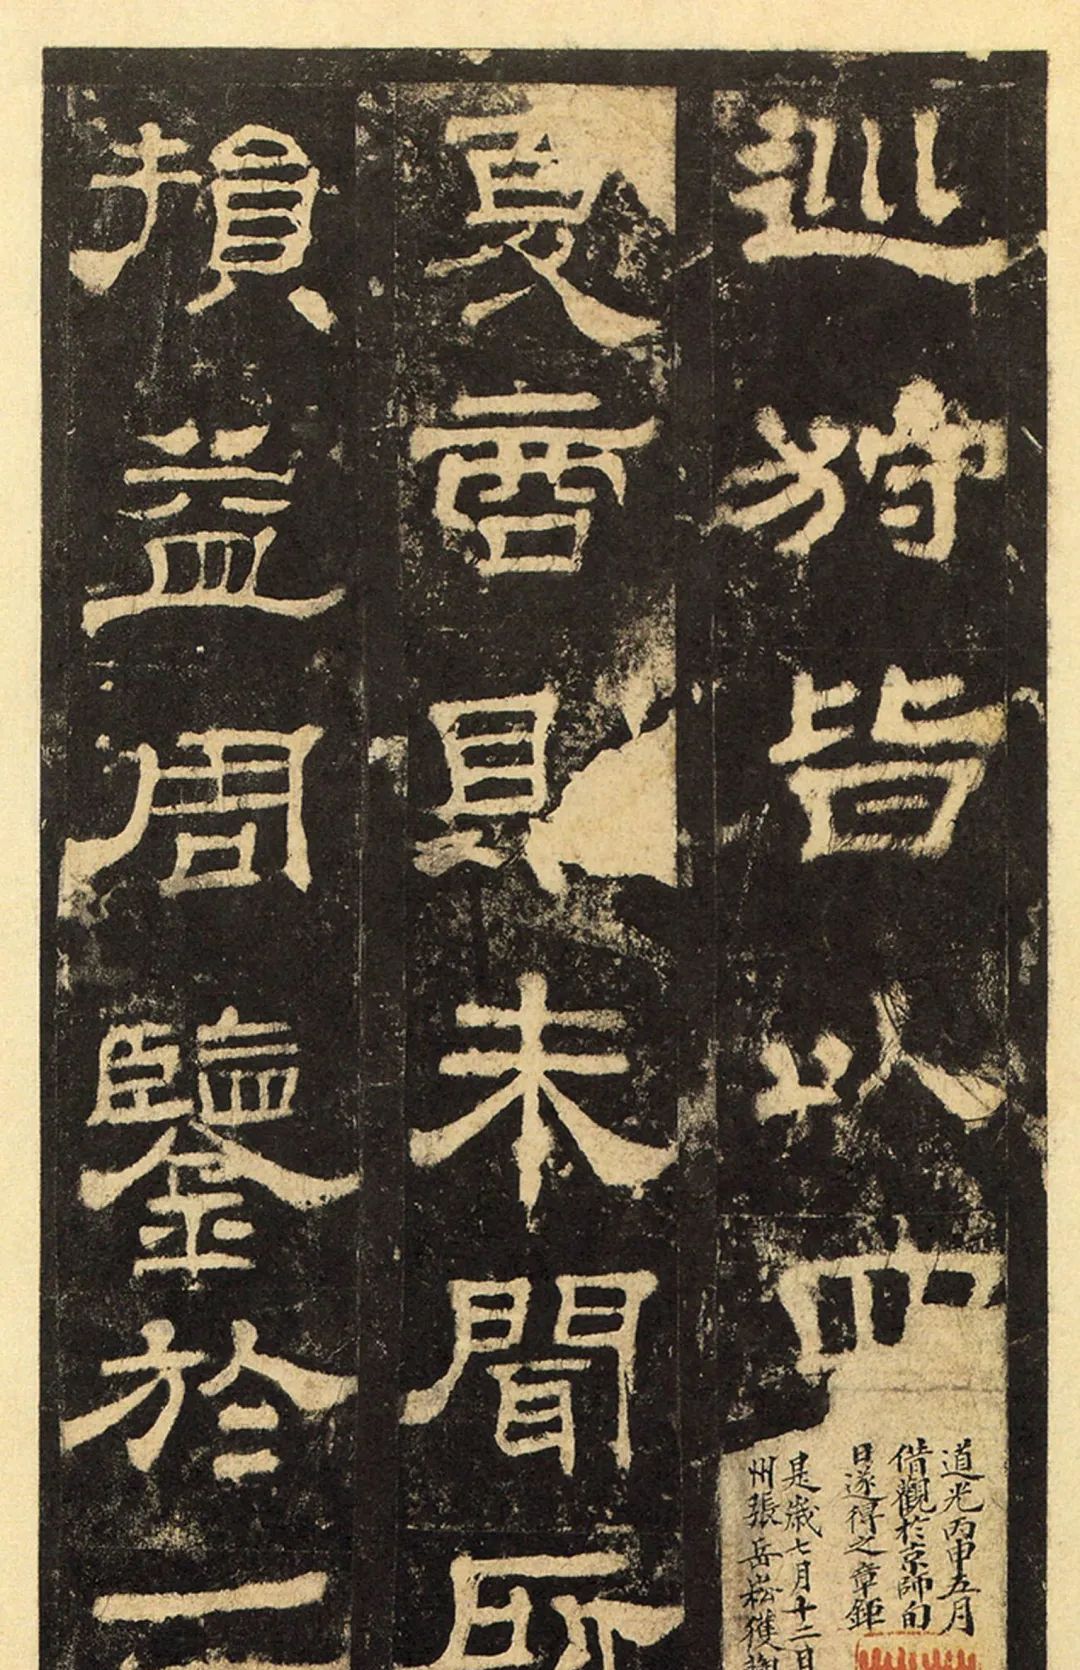 巡狩皆以四
夏商則未聞所
損益周鑒於二
道光丙申五月
借觀於京師旬
日遂得之章鉅
是歲七月十二日
州張岳崧獲